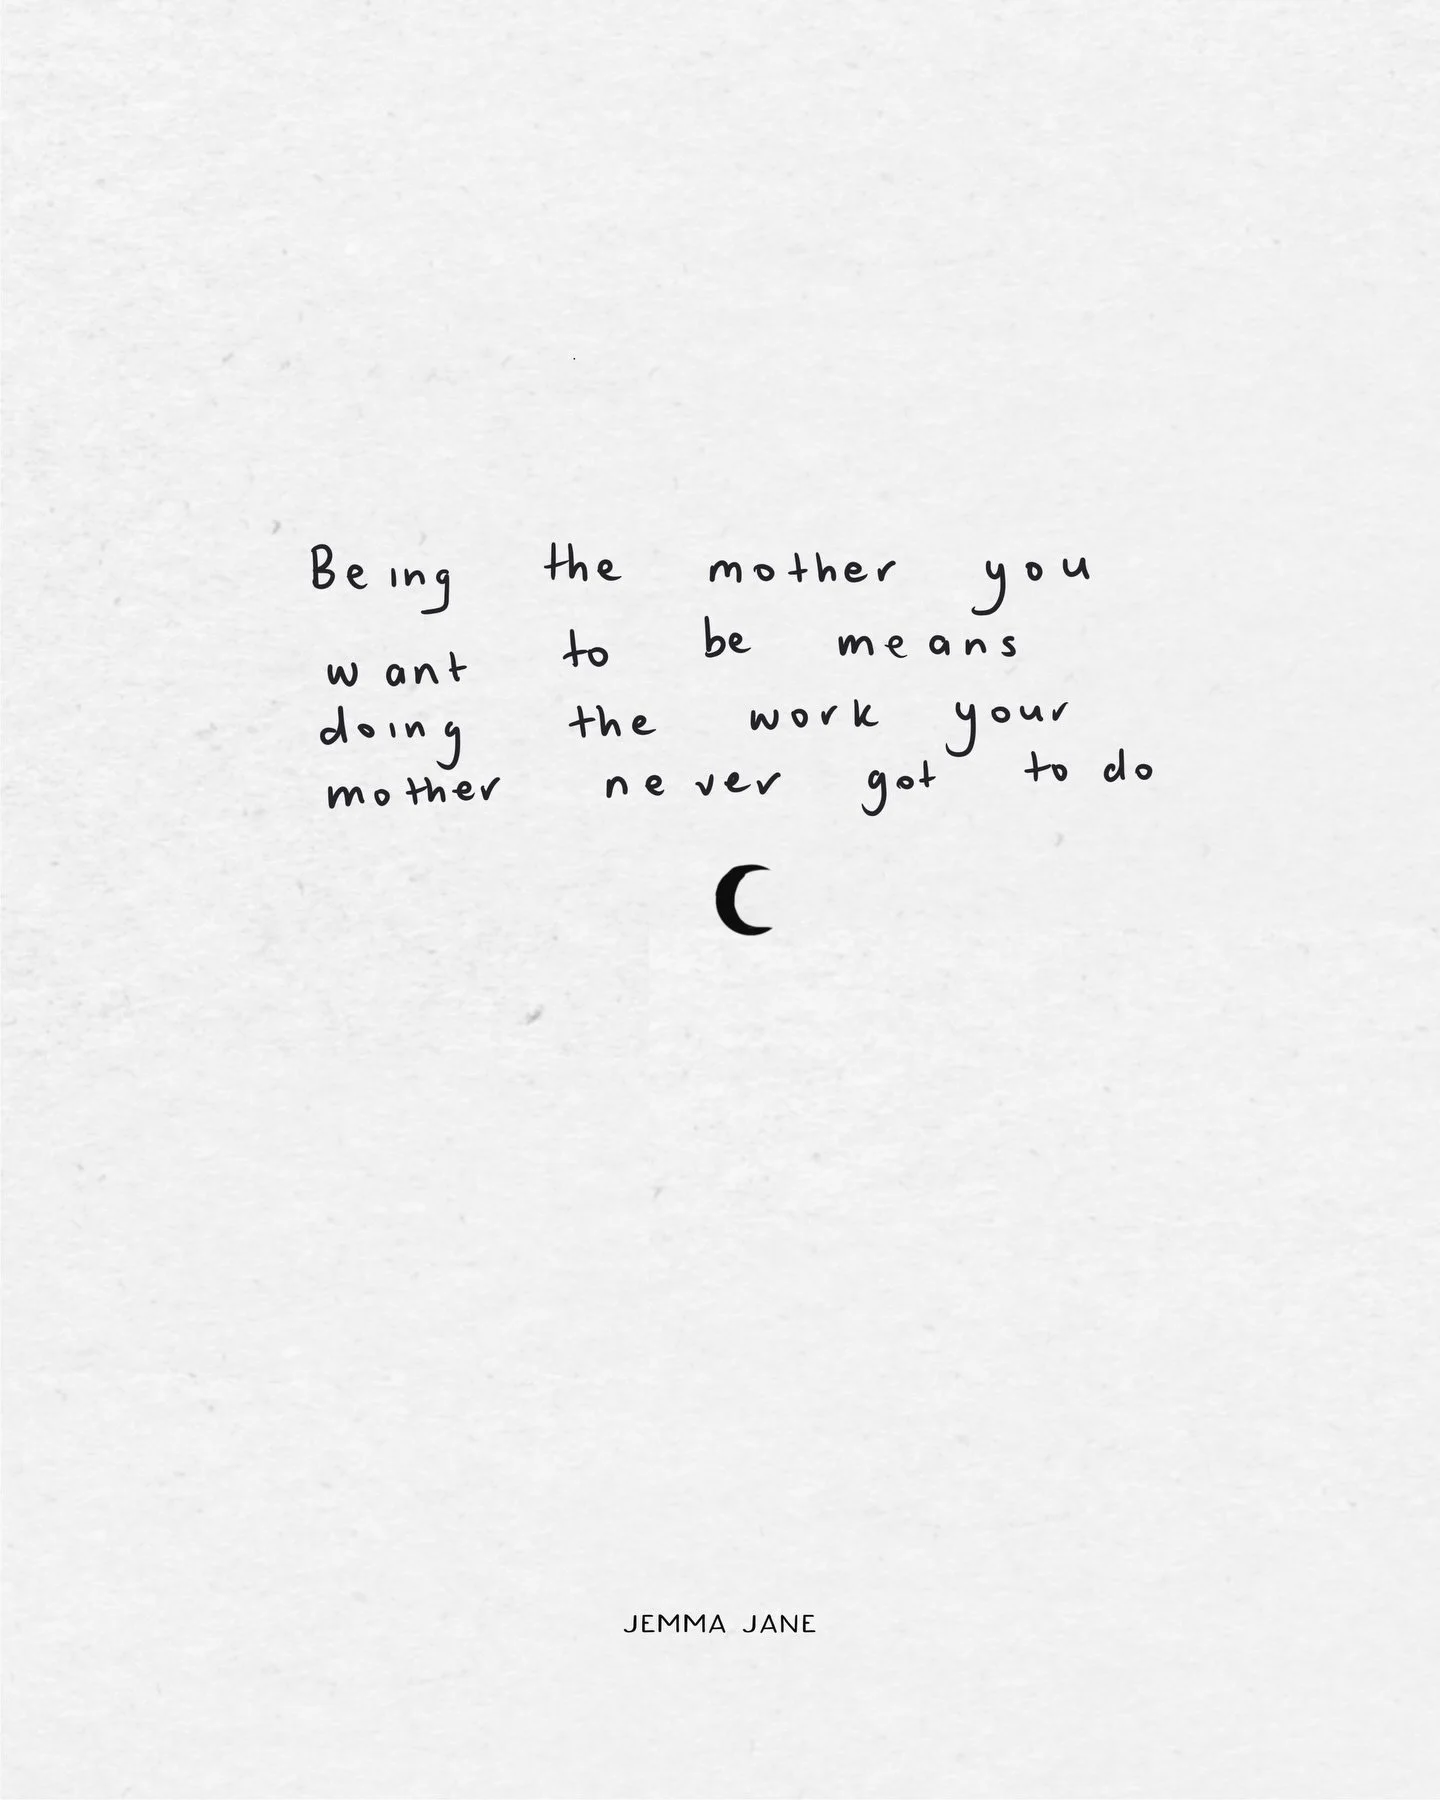 Being the mother you
want to be means
doing the work your
mother never got to do
JEMMA JANE